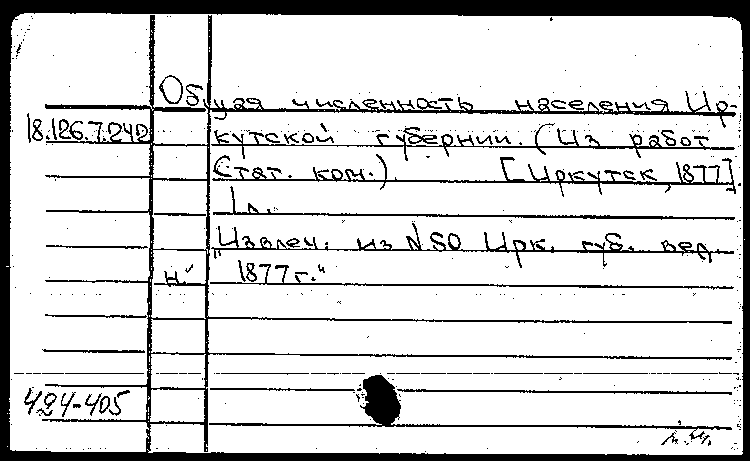 Общая численность населения Ир-
18.126.7.242 кутской губернии. (Из работ
Стат. ком.). [Иркутск, 1877].
1 л.
"Извлеч. из №50 Ирк. губ. вед.
н." 1877 г."
424-405